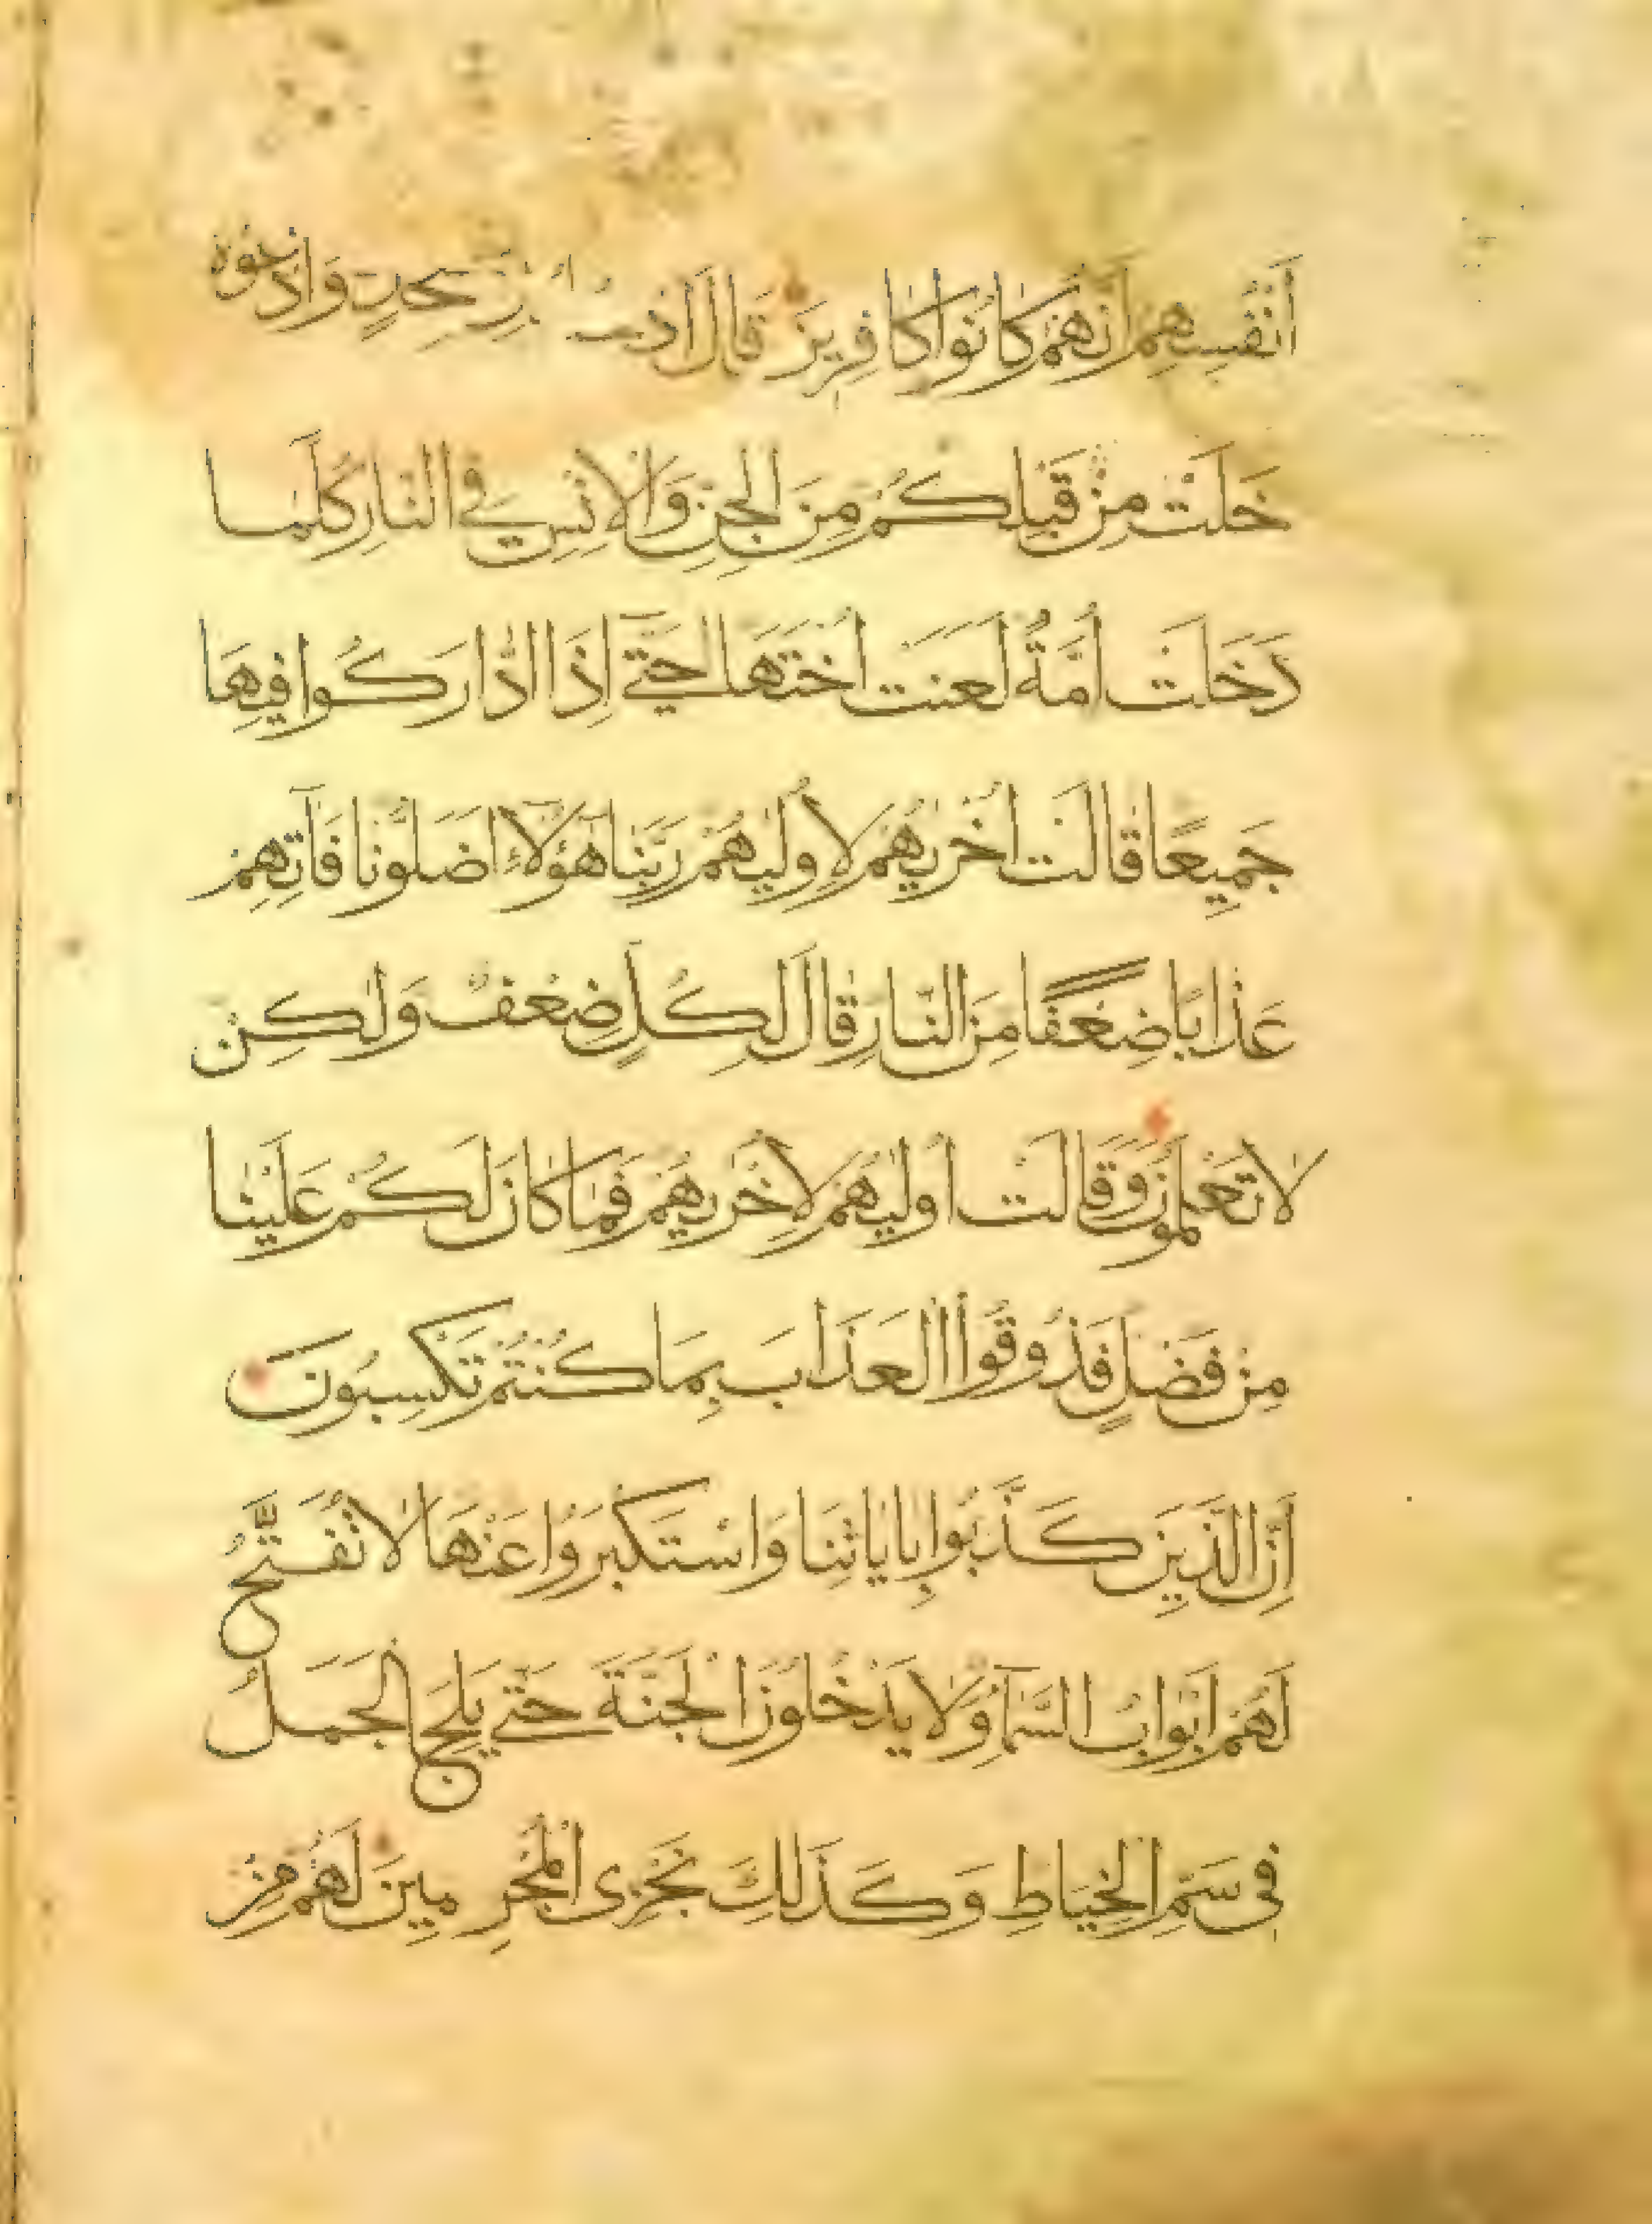 أَنْفُسِهِمْ أَنَّهُمْ كَانُوا كَافِرِينَ قَالَ
خَلَتْ مِنْ قَبْلِكُمْ مِنَ الْجِنِّ وَالْإِنْسِ فِي النَّارِ كُلَّمَا
دَخَلَتْ أُمَّةٌ لَعَنَتْ أُخْتَهَا حَتَّى إِذَا ادَّارَكُوا فِيهَا
جَمِيعًا قَالَتْ أُخْرَيهُمْ لِأُولَيهُمْ رَبَّنَا هَؤُلَاءِ أَضَلُّونَا فَآتِهِمْ
عَذَابًا ضِعْفًا مِنَ النَّارِ قَالَ لِكُلٍّ ضِعْفٌ وَلَكِنْ
لَا تَعْلَمُونَ وَقَالَتْ أُولَيهُمْ لِأُخْرَيهُمْ فَمَا كَانَ لَكُمْ عَلَيْنَا
مِنْ فَضْلٍ فَذُوقُوا الْعَذَابَ بِمَا كُنْتُمْ تَكْسِبُونَ
إِنَّ الَّذِينَ كَذَّبُوا بِآيَاتِنَا وَاسْتَكْبَرُوا عَنْهَا لَا تُفَتَّحُ
لَهُمْ أَبْوَابُ السَّمَاءِ وَلَا يَدْخُلُونَ الْجَنَّةَ حَتَّى يَلِجَ الْجَمَلُ
فِي سَمِّ الْخِيَاطِ وَكَذَلِكَ نَجْزِي الْمُجْرِمِينَ لَهُمْ مِنْ